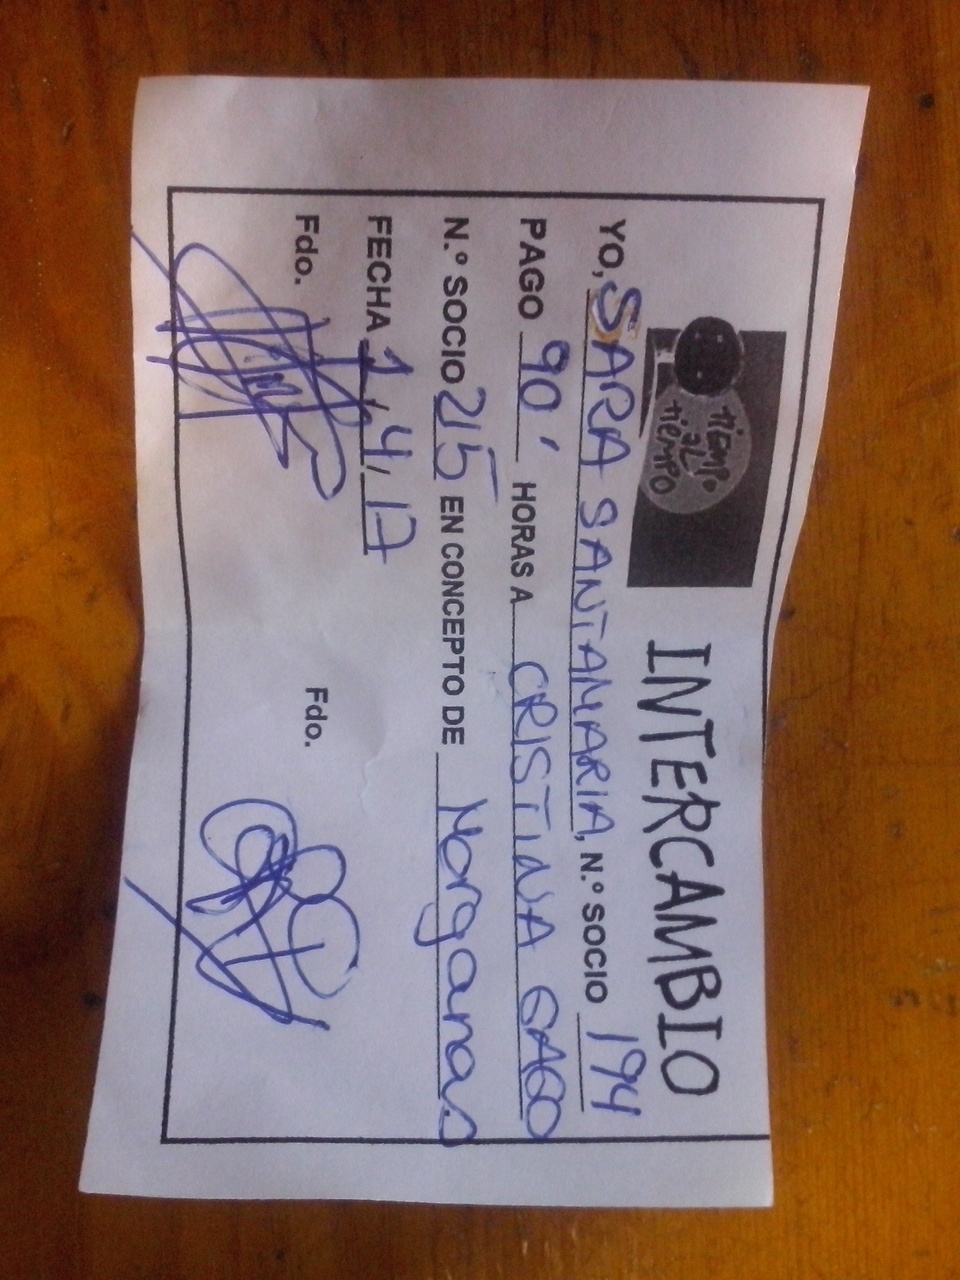 tiEMPo
aL
tiEMPO
INTERCAMBIO
YO, SARA SANTAMARIA, N.º SOCIO 194
PAGO 90' HORAS A CRISTINA GAGO
N.º SOCIO 215 EN CONCEPTO DE Morganas
FECHA 1/4/17
Fdo. Fdo.